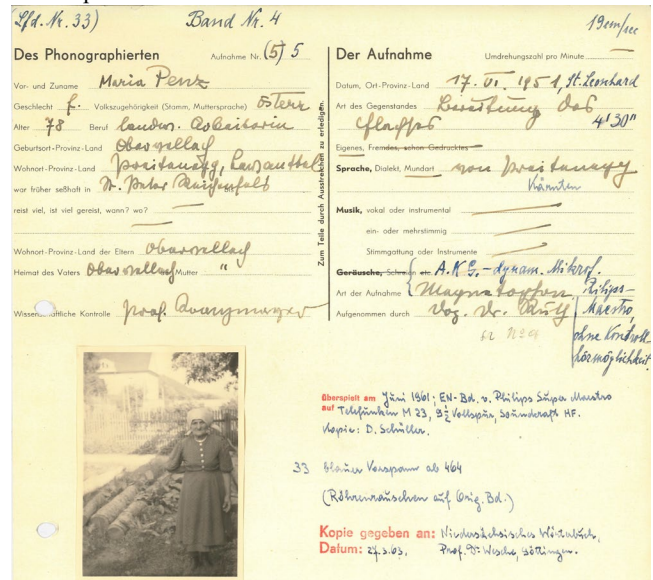 Lfd. Nr. 33) Band Nr. 4 19cm/sec
Des Phonographierten Aufnahme Nr. (5) 5
Vor- und Zuname Maria Penz
Geschlecht f. Volkszugehörigkeit (Stamm, Muttersprache) österr
Alter 78 Beruf landw. Arbeiterin
Geburtsort-Provinz-Land Obervellach
Wohnort-Provinz-Land Preitenegg, Lavanttal
war früher seßhaft in St. Peter Reichenfels
reist viel, ist viel gereist, wann? wo?
Wohnort-Provinz-Land der Eltern Obervellach
Heimat des Vaters Obervellach Mutter "
Wissenschaftliche Kontrolle Prof. Kranzmayer
Zum Teile durch Ausstreichen zu erledigen.
Der Aufnahme Umdrehungszahl pro Minute
Datum, Ort-Provinz-Land 17. VI. 1951, St. Leonhard
Art des Gegenstandes Bereitung des
Flachses 4'30"
Eigenes, Fremdes, schon Gedrucktes
Sprache, Dialekt, Mundart von Preitenegg
Kärnten
Musik, vokal oder instrumental
ein- oder mehrstimmig
Stimmgattung oder Instrumente
Geräusche, Schreien etc. A.K.G.-dynam. Mikrof.
Art der Aufnahme Magnetophon Philips-
Aufgenommen durch Doz. Dr. Ruth Maestro,
ohne Kontroll-
hörmöglichkeit
überspielt am Juni 1961; EN-Bd. v. Philips Super Maestro
auf Telefunken M 23, 9½ Vollspur, Soundcraft HF.
Kopie: D. Schüller.
33 blauer Vorspann ab 464
(Röhrenrauschen auf Orig. Bd.)
Kopie gegeben an: Niedersächsisches Wörterbuch,
Datum: 27.3.63, Prof. Dr. Wesche, Göttingen.